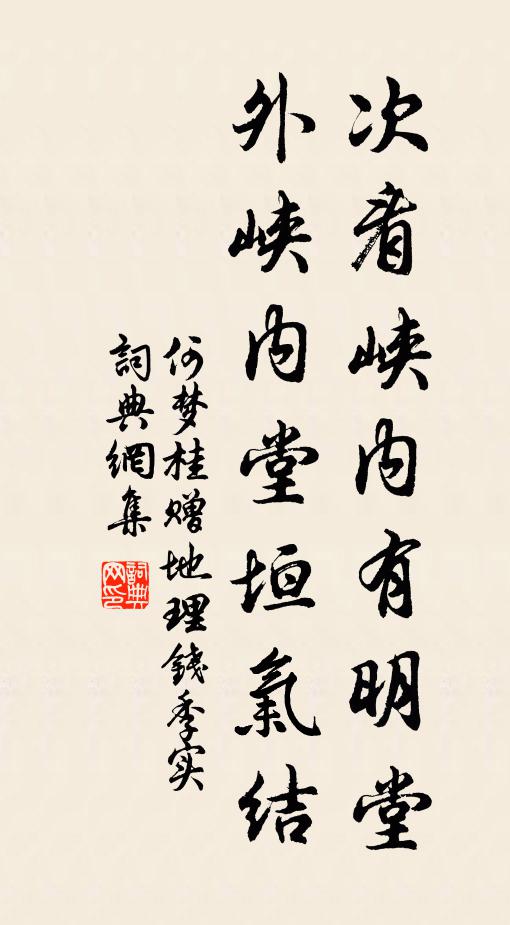 次看峡内有明堂
外峡内堂垣氣结
何梦桂赠地理錢季实
詞典網集
詞典
网印